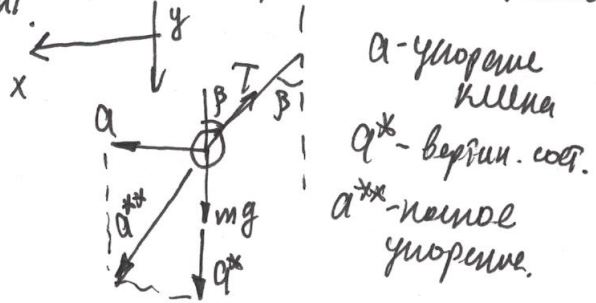 y
x
β
T
β
a
a**
mg
a*
a - ускорение
клина
a* - вертик. сост.
a** - полное
ускорение.